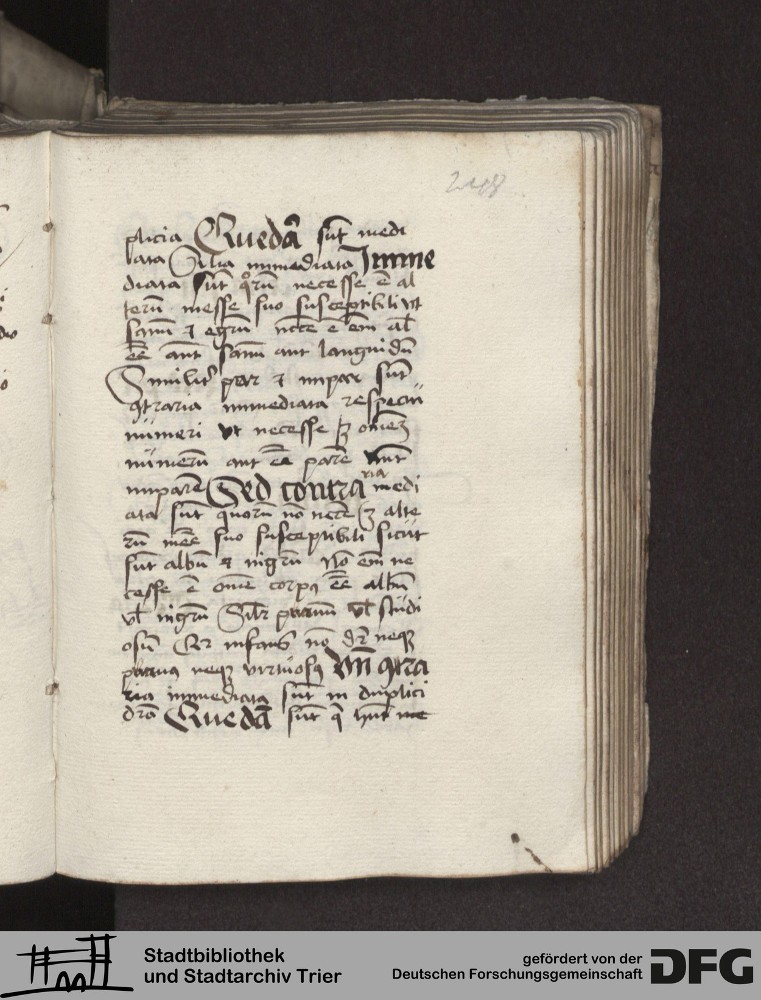 plicia Quedā sūt medi
lata Alia immediata Jmme
diata sūt qͦrū necesse ē al
terū inesse suo susceptibili vt
sanū ⁊ egrū ncce ē em̄ al̄
ēē aut sanū aut languidū
Similit᷑ par ⁊ impar sūt
ꝯtraria immediata respectu
numeri vt necesse ē om̄eꝫ
numerū aut ēē parē aut
imparē Sed contraria medi
ata sūt quorū nō ncc̄e ē alte
rū inēē suo susceptibili sicut
sūt albū ⁊ nigrū Nō em̄ ne
cesse ē om̄e corpꝰ ēē albū
vl̄ nigrū Sil̄r vl̄ studi
osū infans nō dr̄ neqꝫ
prauus neqꝫ virtuosꝰ Vn̄ ꝯtra
ria immediata sūt in duplici
dr̄a Quedā sūt q̄ hn̄t me
Stadtbibliothek
und Stadtarchiv Trier
gefördert von der
Deutschen Forschungsgemeinschaft
DFG